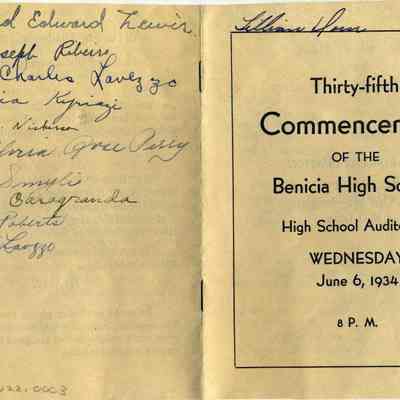 d Edward Lewis
Joseph Ribeiro
Charles Lavezzo
ia Kyriazi
Gloria Rose Perry
Smyli
Baragranda
Roberts
Lavezzo
22.0003
Lillian
Thirty-fifth
Commencem
OF THE
Benicia High Sc
High School Audito
WEDNESDAY
June 6, 1934
8 P. M.